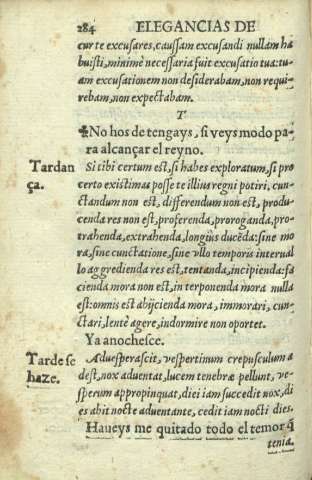 284 ELEGANCIAS DE
cur te excusares, caussam excusandi nullam ha
buisti, minimè necessaria fuit excusatio tua: tu-
am excusationem non desiderabam, non requi-
rebam, non expectabam.
T
✠No hos detengays, si veys modo pa-
ra alcançar el reyno.
Tardan
ça.
Si tibi certum est, si habes exploratum, si pro
certo existimas posse te illius regni potiri, cun-
ctandum non est, differendum non est, produ-
cenda res non est, proferenda, proroganda, pro-
trahenda, extrahenda, longiùs ducẽda: sine mo
ra, sine cunctatione, sine vllo temporis interual
lo aggredienda res est, tentanda, incipienda: fa
cienda mora non est, in terponenda mora nulla
est: omnis est abijcienda mora, immorari, cun-
ctari, lentè agere, indormire non oportet.
Ya anochesce.
Tarde se
haze.
Aduesperascit, vespertinum crepusculum a
dest, nox aduentat, lucem tenebræ pellunt, ve-
sperum appropinquat, diei iam succedit nox, di
es abit nocte aduentante, cedit iam nocti dies.
Haueys me quitado todo el temor q̃
tenia.